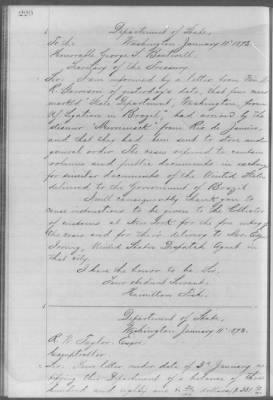 220
Department of State,
To the Washington January 11th 1873.
Honorable George S. Boutwell
Secretary of the Treasury.
Sir: I am informed by a letter from
R. Garrison of yesterday's date, that four cases
marked State Department, Washington, from
Legation in Brazil, had arrived by the
steamer "Merrimack" from Rio de Janeiro,
and that they had been sent to store under
general order. The cases referred to contain
volumes and public documents, in exchange
for similar documents of the United States
delivered to the Government of Brazil.
I will consequently thank you to
cause instructions to be given to the Collector
of customs at New York for the free entry of
the cases and for their delivery to Mr.
Irving, United States Despatch Agent in
that city.
I have the honor to be, Sir,
Your obedient Servant,
Hamilton Fish.
Department of State,
Washington January 11th 1873.
R. W. Tayler, Esquire
Comptroller
Sir: Your letter under date of 3rd January
this Department of a balance of Three
hundred and eighty one &amp; dollars, $381